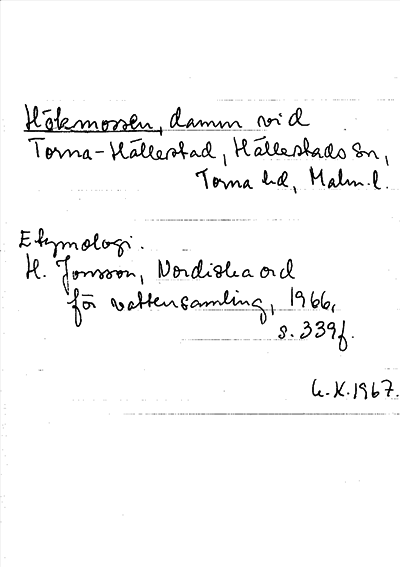 Hökmossen, damm vid
Torna-Hällestad, Hällestads sn,
Torna hd, Malm. l.
Etymologi.
H. Jonsson, Nordiska ord
för vattensamling, 1966,
s. 339f.
K. 1967.